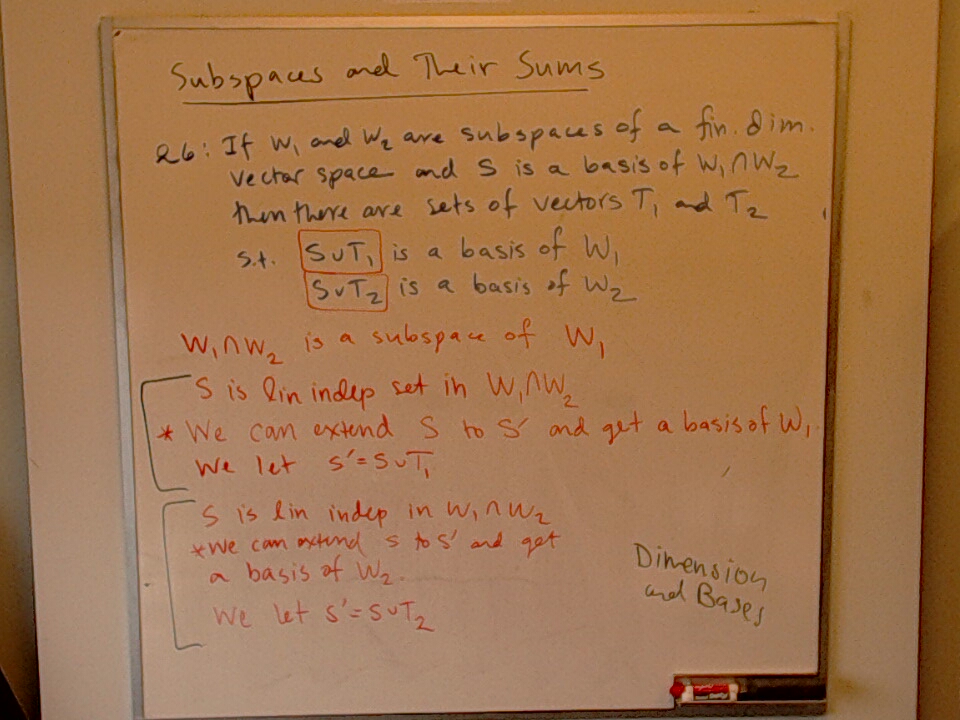 Subspaces and Their Sums
Q6: If W₁ and W₂ are subspaces of a fin. dim.
vector space and S is a basis of W₁∩W₂
then there are sets of vectors T₁ and T₂
s.t. S∪T₁ is a basis of W₁
S∪T₂ is a basis of W₂
W₁∩W₂ is a subspace of W₁
S is lin indep set in W₁∩W₂
* We can extend S to S' and get a basis of W₁
We let S'=S∪T₁
S is lin indep in W₁∩W₂
*We can extend S to S' and get
a basis of W₂.
We let S'=S∪T₂
Dimension
and Bases